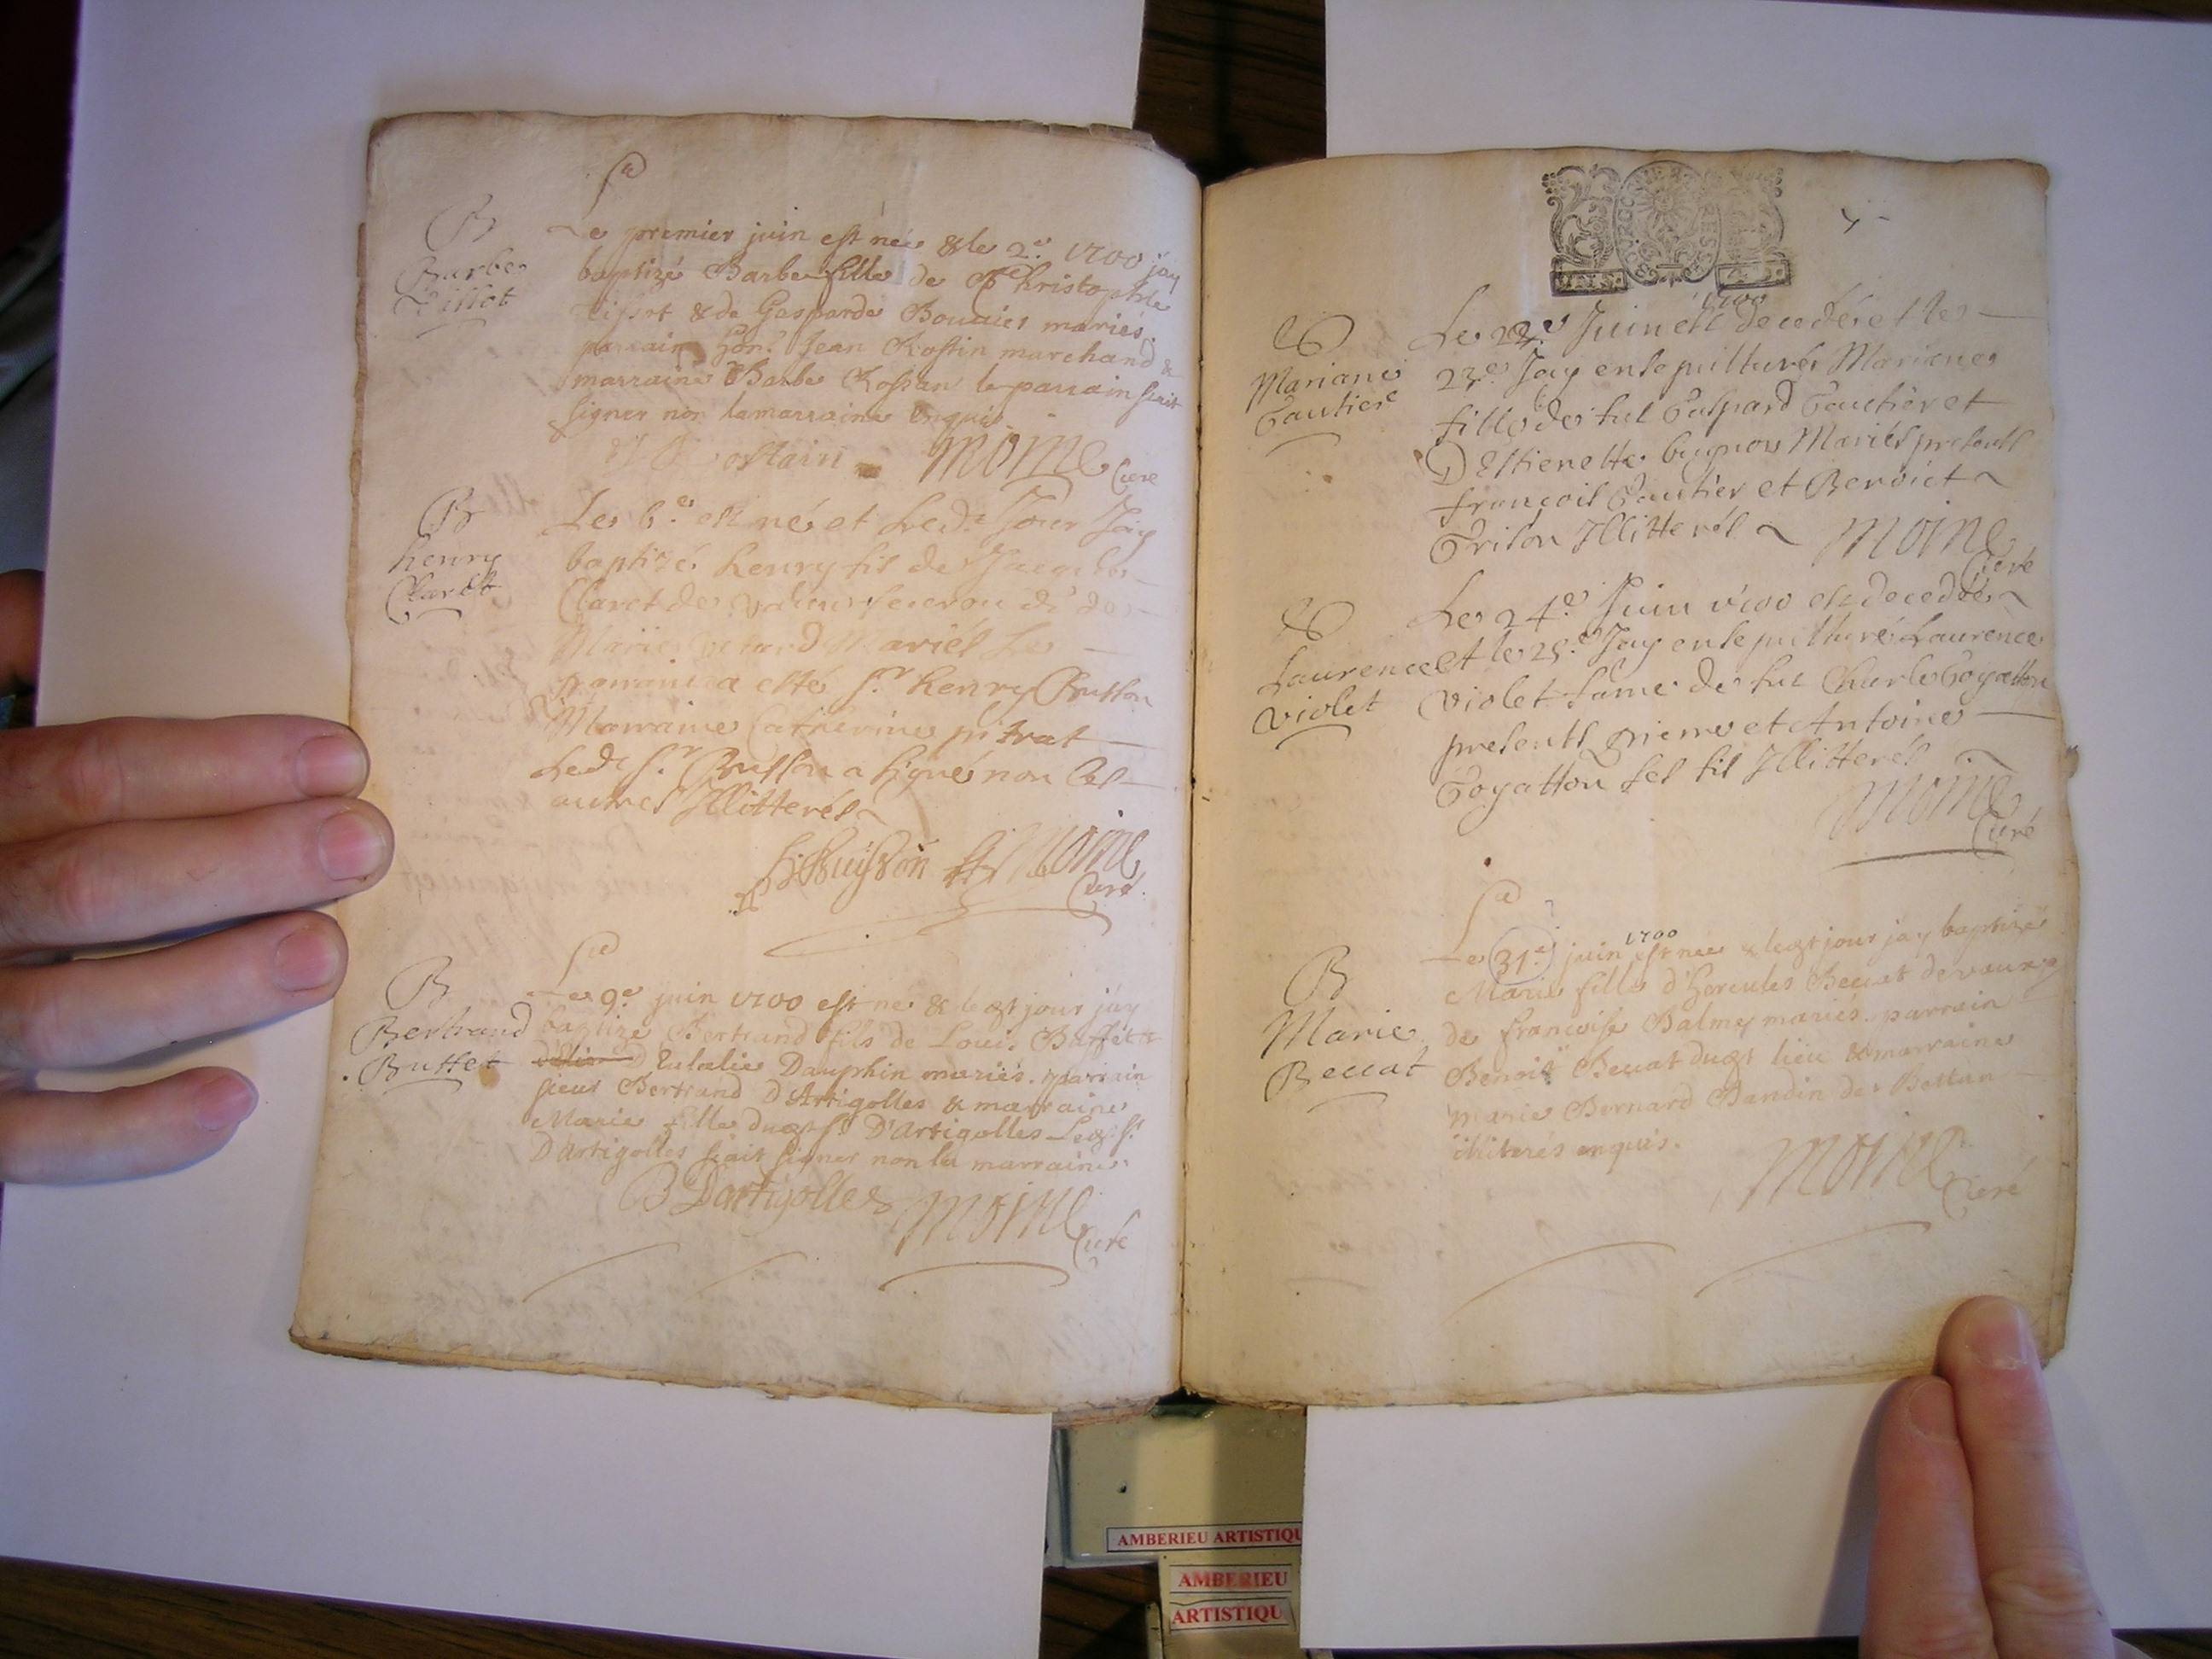 B
Barbe
Tissot
Le premier juin est née & le 2.e 1700 jay
baptizé Barbe fille de Christophle
Tissot & de Gasparde Bouvier mariés.
parrain hon. Jean Rostin marchand &
marraine Barbe Rossan le parrain sçait
signer non la marraine enquis.
ostain Moine Curé
B
henry
Claret
Le 6.e est né et Led. Jour Jay
baptizé henry fils de Jacques
Claret de
Marie Mariés Le
parrain a esté s.r henry Buisson
Marraine Catherine pitrat
Led. s.r Buisson a signé non Les
autres Illitterés
h Buisson Moine
Curé
B
Bertrand
Buffet
Le 9.e juin 1700 est né & led jour jay
baptizé Bertrand fils de Louis Buffet &
D Eulalie Dauphin mariés. parrain
sieur Bertrand D'Artigolles & marraine
Marie fille dud s.r D'Artigolles Led. s.r
D'Artigolles sçait signer non la marraine.
B Dartigolles Moine
Curé
BOURG BRESSE
Mariane
Gautier
1700
Le 22.e Juin est decedée et le
23.e Jay ensepulturé Mariane
fille de fut Gaspard Gautier et
D Estienette bugnon Mariés presents
françois Gautier et Benoict
Grison Illitterés Moine
Curé
Laurence
Violet
Le 24.e Juin 1700 est decedée
et le 25.e Jay ensepulturé Laurence
Violet fame de fut Charle Goyatton
presents pierre et Antoine
Goyatton ses fils Illitterés
Moine
Curé
B
Marie
Beccat
1700
Le 31.e juin est née & led jour jay baptizé
Marie fille d'Hercules Beccat de vaux &
de francoise Balmey mariés. parrain
Benoit Beccat dud lieu & marraine
Marie Bernard Dandin de Bettan
illiterés enquis.
Moine Curé
AMBERIEU ARTISTIQU
AMBERIEU
ARTISTIQU